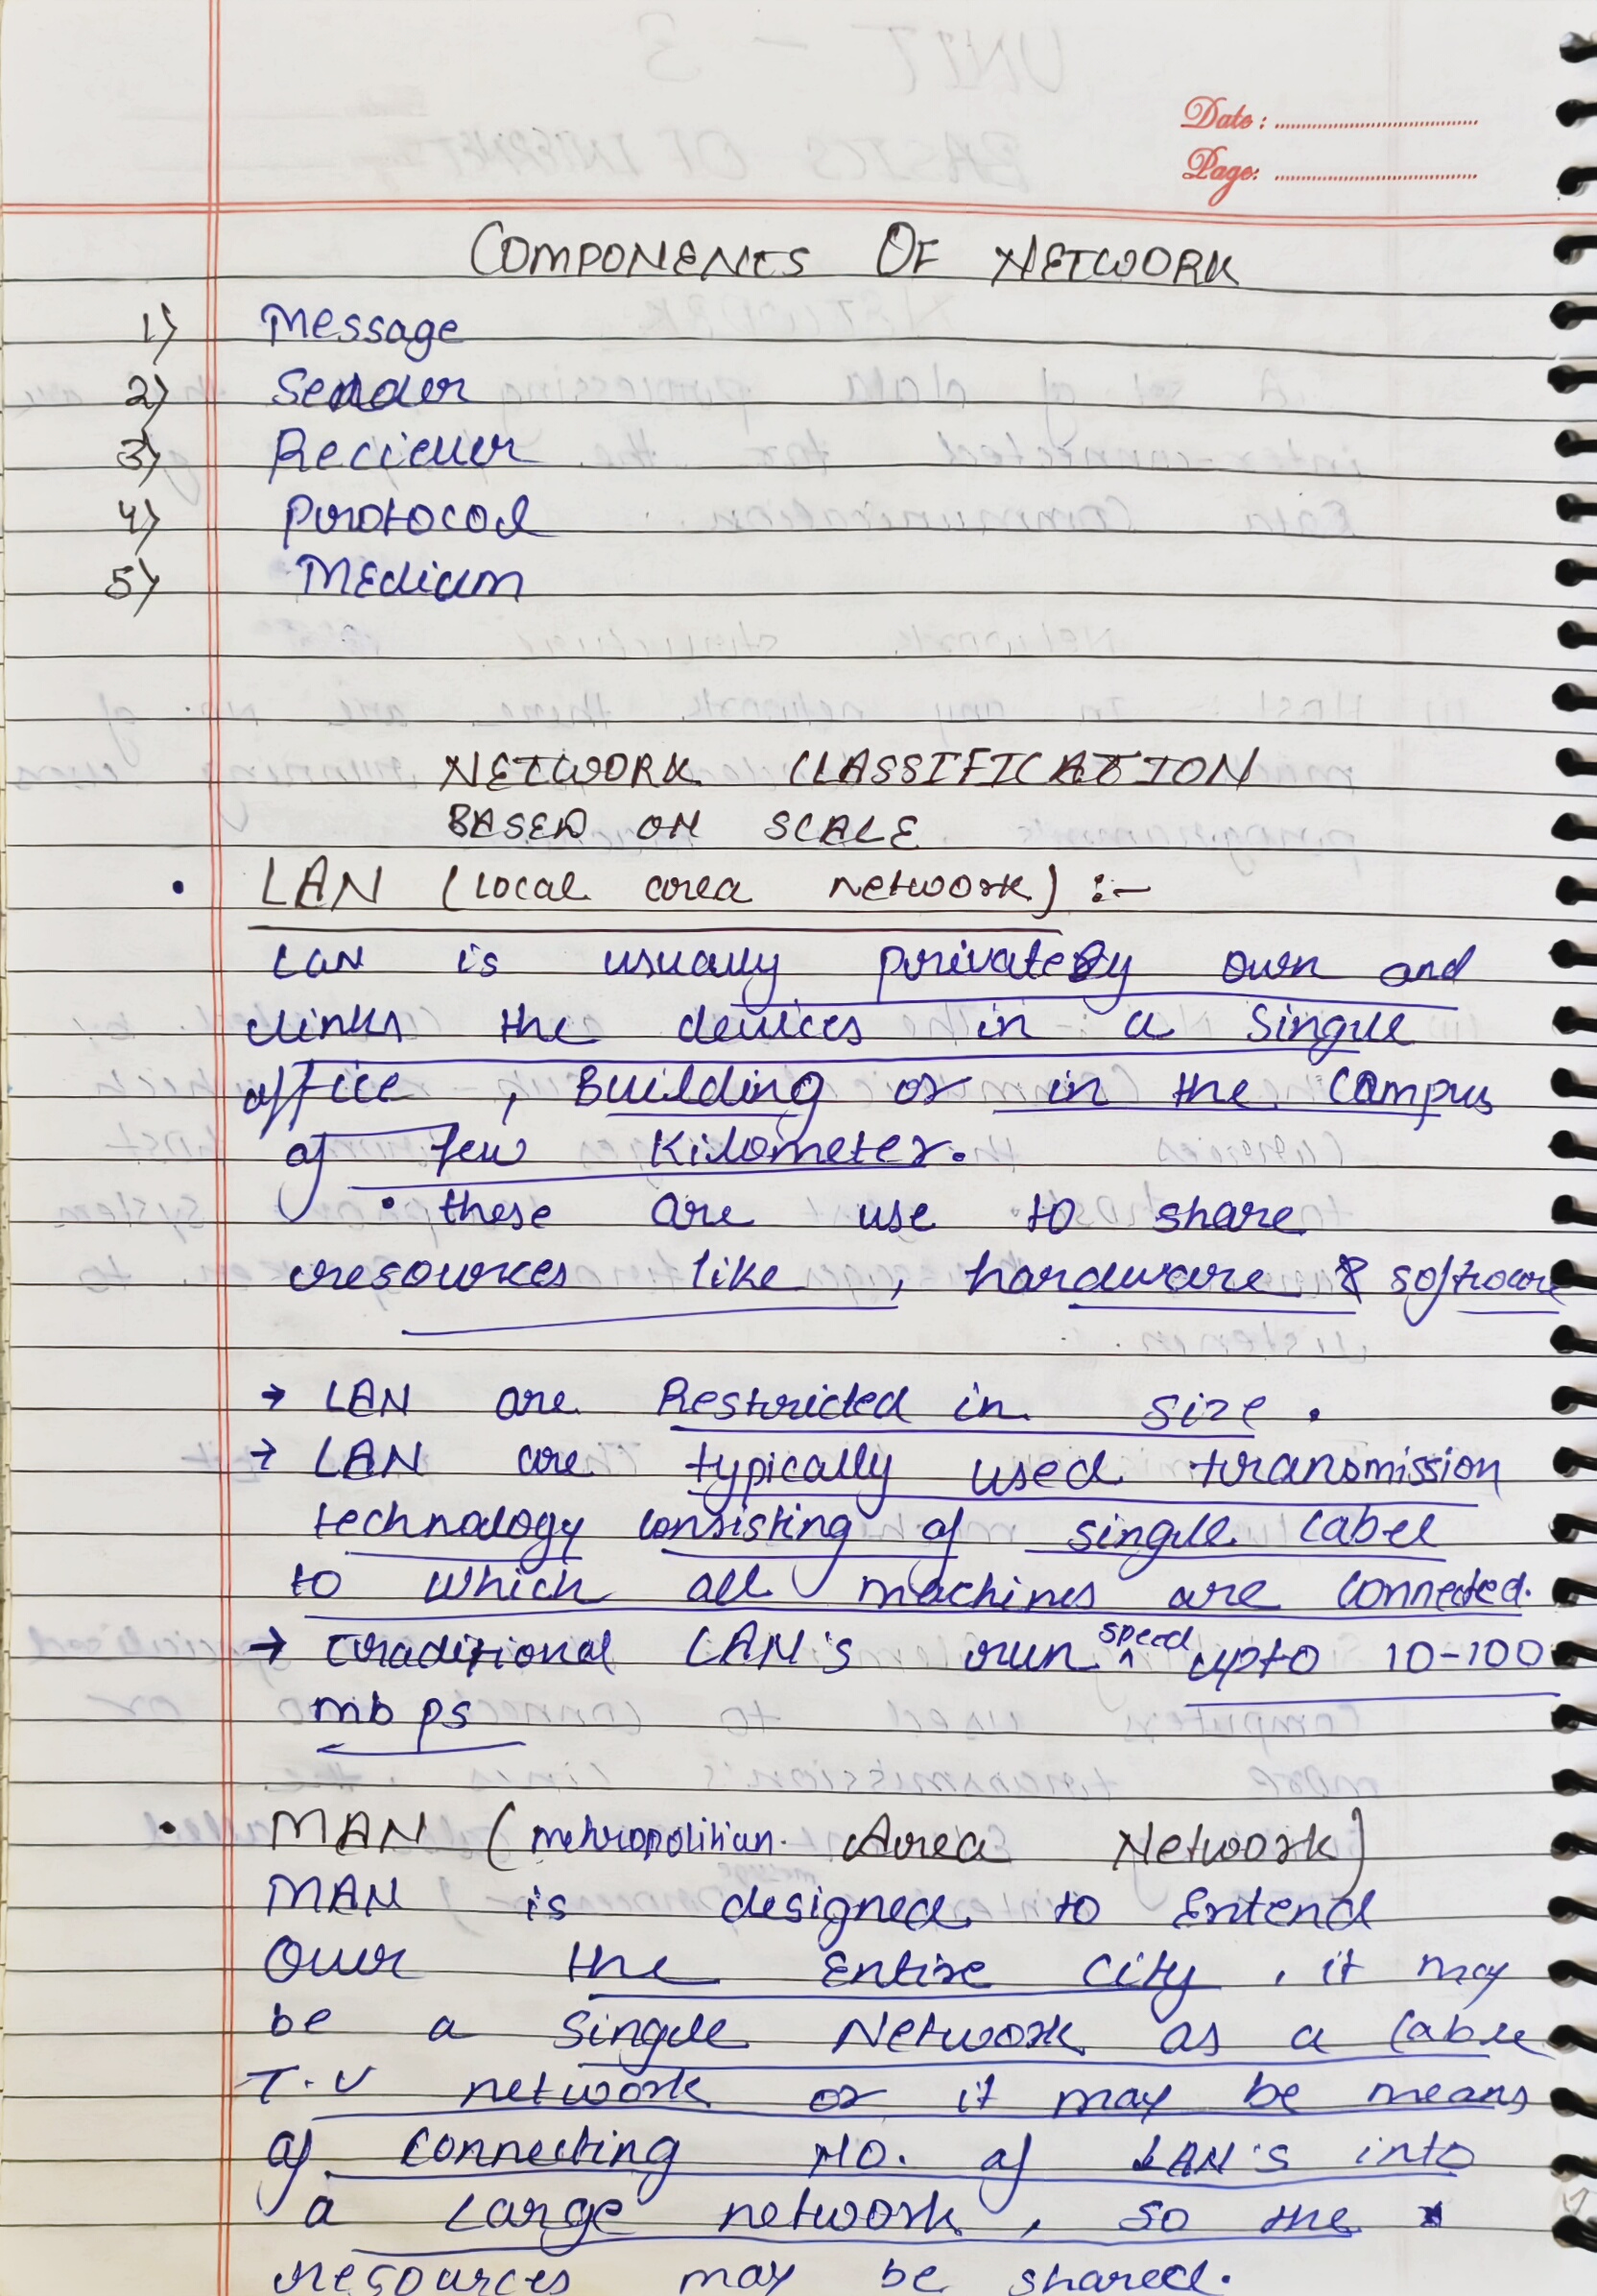 Date:
Page:
COMPONENTS OF NETWORK
1) Message
2) Sender
3) Reciever
4) Protocol
5) Medium
NETWORK CLASSIFICATION
BASED ON SCALE
• LAN (Local area network) :-
LAN is usually privately own and
links the devices in a single
office , Building or in the Campus
of few Kilometer.
• these are use to share
resources like , hardware & software
→ LAN are Restricted in size .
→ LAN are typically used transmission
technology consisting of single cabel
to which all machines are connected.
→ traditional LAN's run speed upto 10-100
mb ps
• MAN (metropolitian. Area Network)
MAN is designed to Entend
Over the Entire City , it may
be a single Network as a Cable
T.V network or it may be means
of connecting NO. of LAN's into
a large network , so the
resources may be shared.